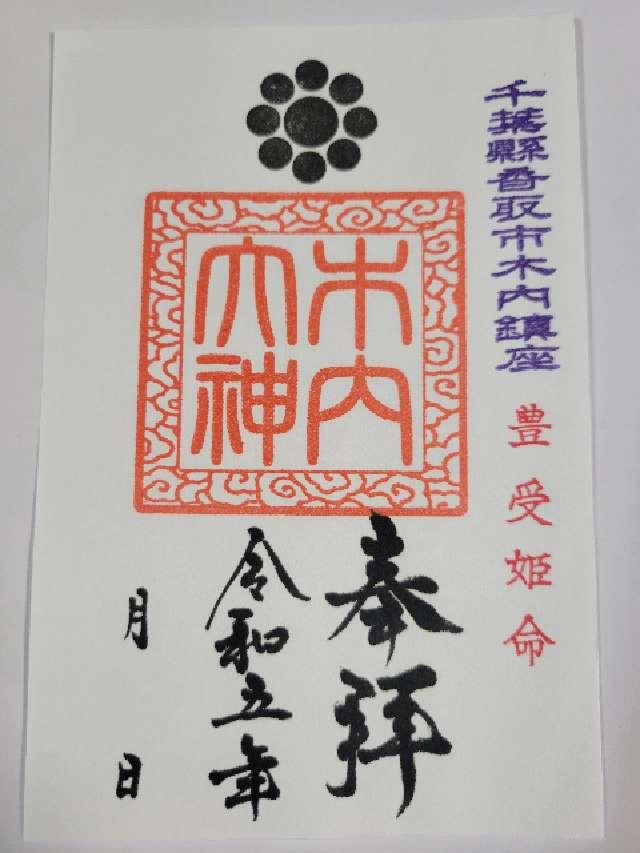 千葉縣香取市木内鎮座
豊受姫命
木内
大神
奉拝
令和五年
月　日